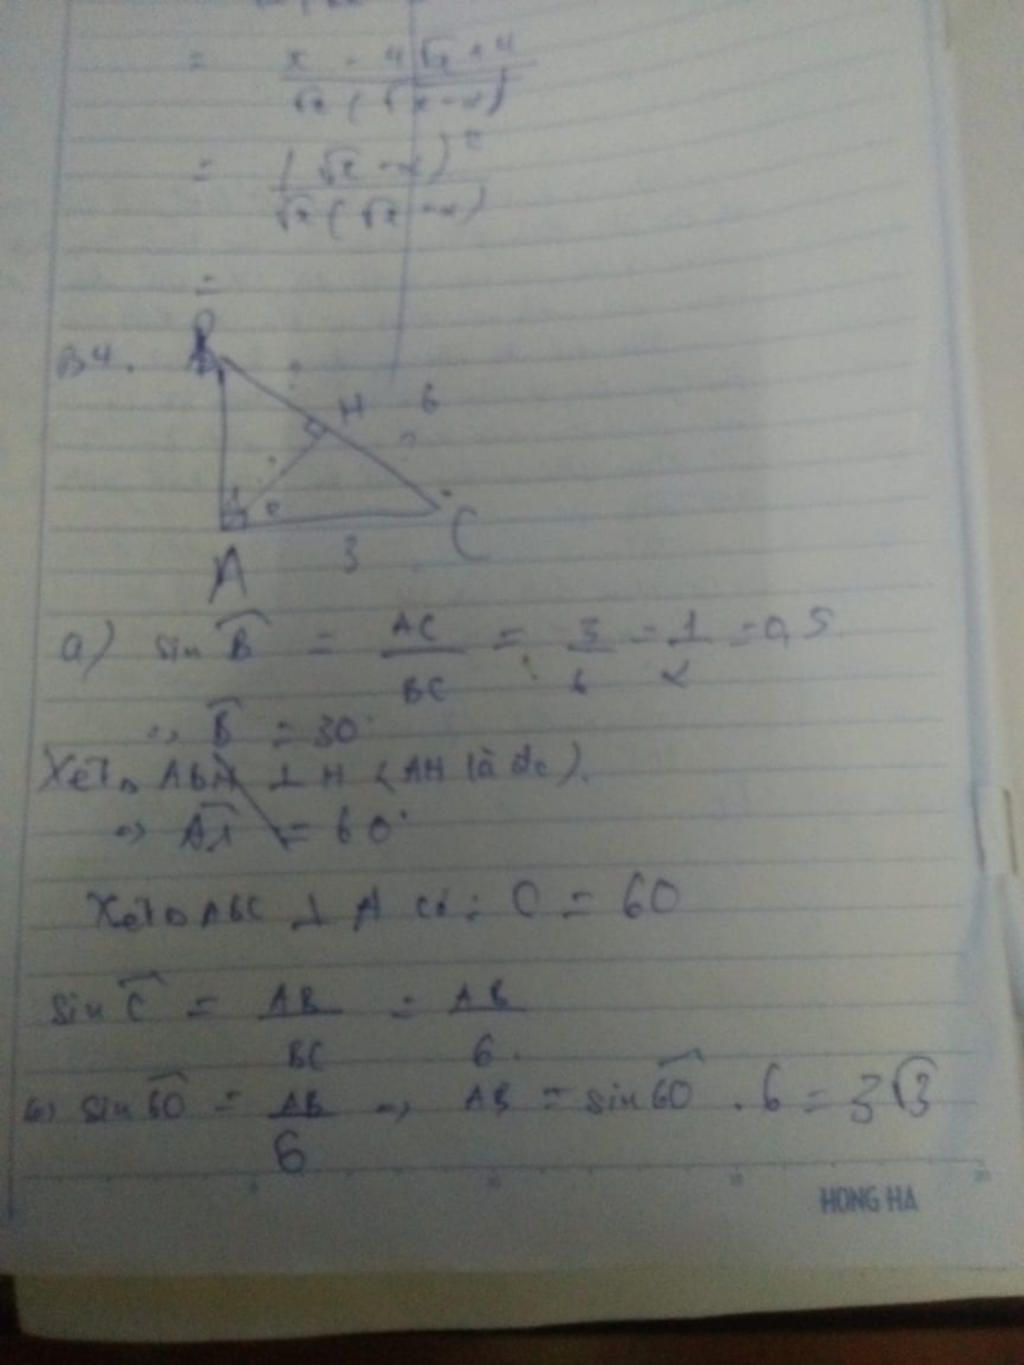 = x - 4√x + 4 / √x (√x - 2)
= (√x - 2)² / √x (√x - 2)
=
B4.
B
H 6
A 3 C
a) sin B̂ = AC / BC = 3 / 6 = 1 / 2 = 0,5
=> B̂ = 30°
Xét △ ABH ⊥ H (AH là đc).
=> Â1 = 60°
Xét △ ABC ⊥ A có: C = 60
sin Ĉ = AB / BC = AB / 6.
=> sin 60 = AB / 6 => AB = sin 60 . 6 = 3√3
HONG HA